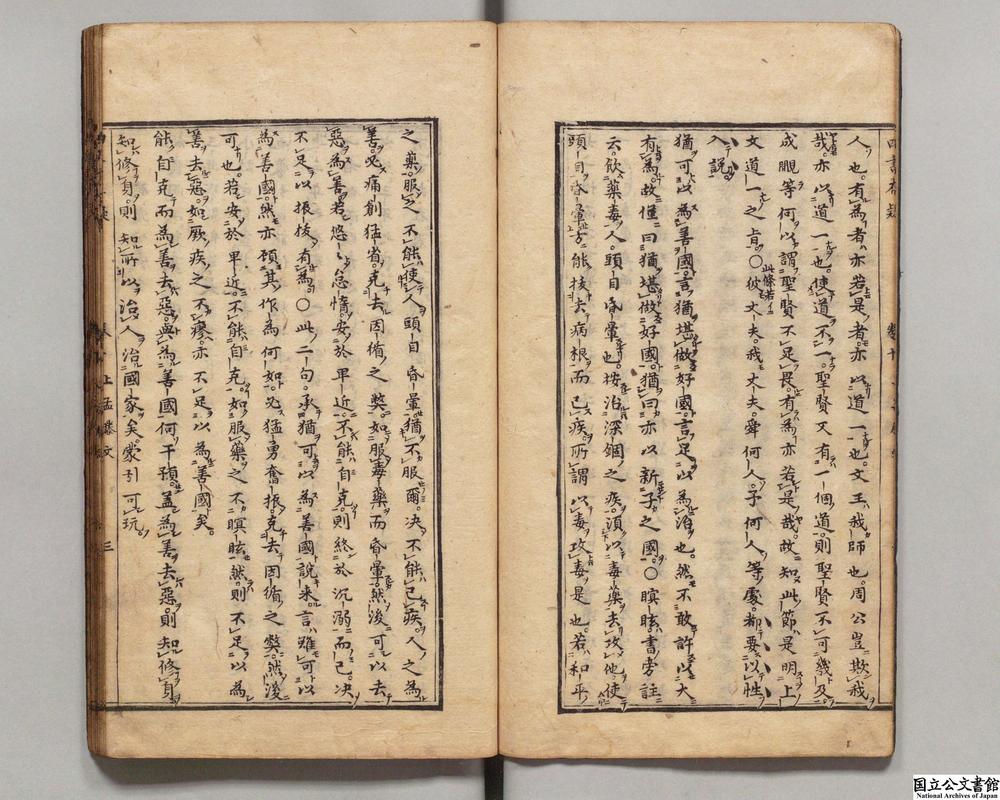 人也。有為者亦若是者。亦以道一也。文王我師也。周公豈欺我
哉。亦以道一也。使道不一。聖賢又有一個道。則聖賢不可幾及。
成覸等何以謂聖賢不足畏。有為亦若是哉。故知此節是明上
文道一之旨。○彼丈夫。我丈夫。舜何人。予何人等處。都要以性
此條若
入說
猶可以為善國。言猶堪做好國。言足以為治也。然不敢許以大
有為。故僅曰猶堪做好國。猶曰亦以新子之國。○瞑眩。書旁註
云。飲藥毒人。頭目昏暈也。按治深錮之疾。須以毒藥去攻他。使
頭目昏暈。方能拔去病根而已疾。所謂以毒攻毒是也。若和平
之藥。服之不能使人頭目昏暈。猶不服爾。決不能已疾。人之為
善。必痛創猛省。克去因循之弊。如服毒藥而昏暈。然後可以去
惡為善。若悠悠怠惰。安於卑近。不能自克。則終於沉溺而已。決
不足以振拔有為。○此二句。承猶可以為善國說來。言雖可以
為善國。然亦顧其作為何如。必猛勇奮振。克去因循之弊。然後
可也。若安於卑近。不能自克。如服藥之不瞑眩然。則不足以為
善去惡。如厥疾之不瘳。亦不足以為善國矣。
能自克而為善去惡。與為善國何干預。蓋為善去惡。則知修身。
知修身。則知所以治人治國家矣。蒙引可玩。
上孟滕文
三
国立公文書館
National Archives of Japan